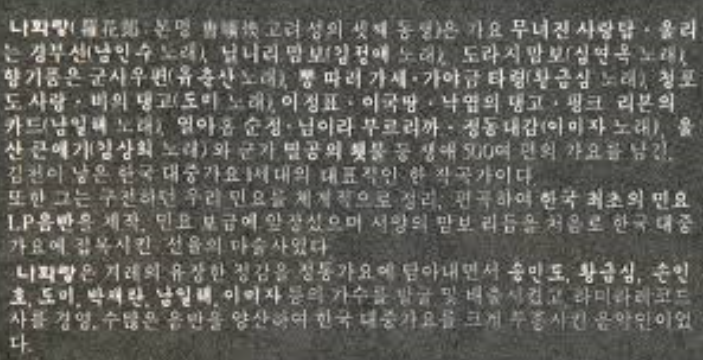 나화랑(羅花郞·본명 曺曠煥 고려성의 셋째 동생)은 가요 무너진 사랑탑·울리
는 경부선(남인수 노래), 닐니리 맘보(김정애 노래), 도라지 맘보(심연옥 노래),
향기품은 군사우편(유춘산 노래), 뽕 따러 가세·가야금 타령(황금심 노래), 청포
도 사랑·비의 탱고(도미 노래), 이정표·이국땅·낙엽의 탱고·핑크 리본의
카드(남일해 노래), 열아홉 순정·님이라 부르리까·정동대감(이미자 노래), 울
산 큰애기(김상희 노래)와 군가 멸공의 횃불 등 생애 500여 편의 가요를 남긴,
김천이 낳은 한국 대중가요 1세대의 대표적인 한 작곡가이다.
또한 그는 구전하던 우리 민요를 체계적으로 정리, 편곡하여 한국 최초의 민요
LP음반을 제작, 민요 보급에 앞장섰으며 서양의 맘보 리듬을 처음으로 한국 대중
가요에 접목시킨 선율의 마술사였다.
나화랑은 겨레의 유장한 정감을 정통가요에 담아내면서 송민도, 황금심, 손인
호, 도미, 박재란, 남일해, 이미자 등의 가수를 발굴 및 배출시켰고, 라미라레코드
사를 경영, 수많은 음반을 양산하여 한국 대중가요를 크게 부흥시킨 음악인이었
다.